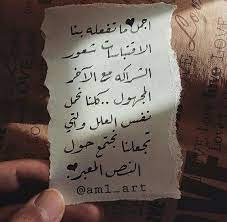 اجمل ما تفعله بنا
الاقتباسات شعور
الشراكه مع الآخر
المجهول .. كلنا نحمل
نفس العلل والتي
تجعلنا نجتمع حول
النص المعبر
@am1_art